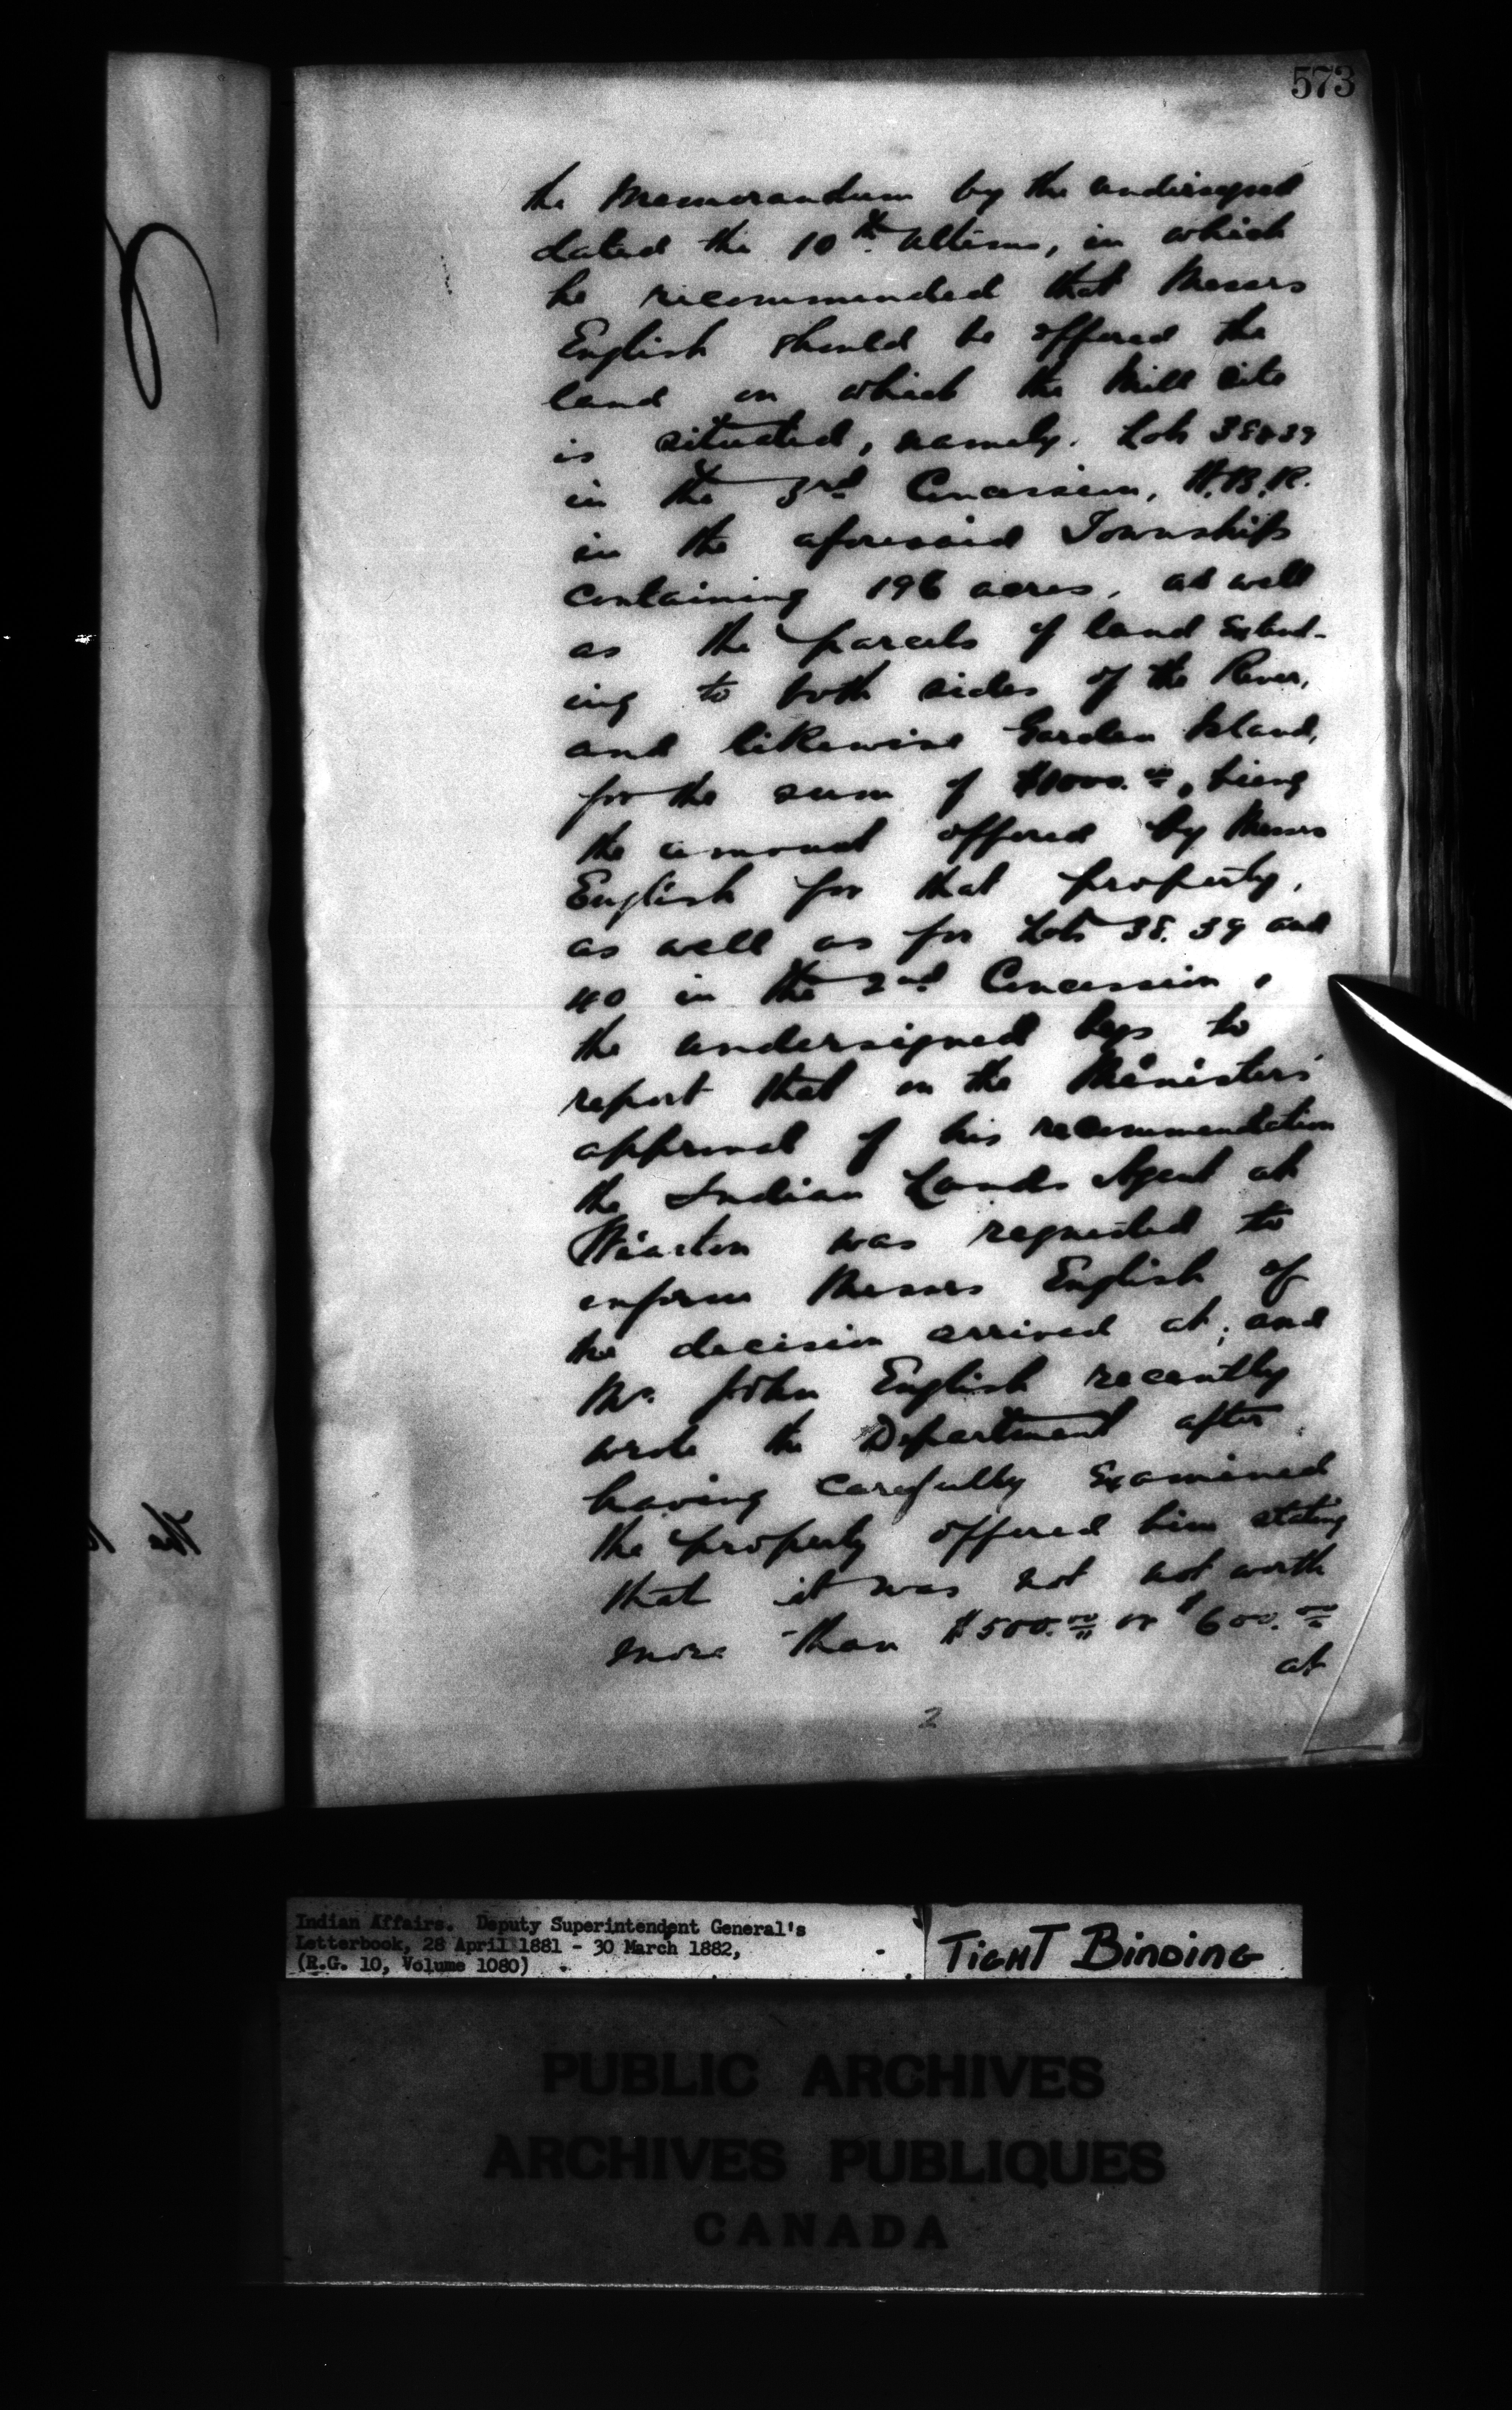 573
the Memorandum by the undersigned
dated the 10th ultimo, in which
he recommended that Messrs
English should be offered the
land on which the Mill site
is situated, namely. Lots 38 & 39
in the 3rd Concession, H.B.R.
in the aforesaid Township
containing 196 acres, as well
as the parcels of land Extend-
ing to both sides of the River,
and likewise Garden Island,
for the sum of $1000.00, being
the amount offered by Messrs
English for that property,
as well as for Lots 38. 39 and
40 in the 2nd Concession,
the undersigned begs to
report that on the Minister's
approval of his recommendation
the Indian Lands Agent at
Wiarton was requested to
inform Messrs English of
the decision arrived at; and
Mr. John English recently
wrote the Department after
having carefully Examined
the property offered him stating
that it was not not worth
more than $500.00 or $600.00
at
2
The
Indian Affairs. Deputy Superintendent General's
Letterbook, 28 April 1881 - 30 March 1882,
(R.G. 10, Volume 1080)
TIGHT BINDING
PUBLIC ARCHIVES
ARCHIVES PUBLIQUES
CANADA